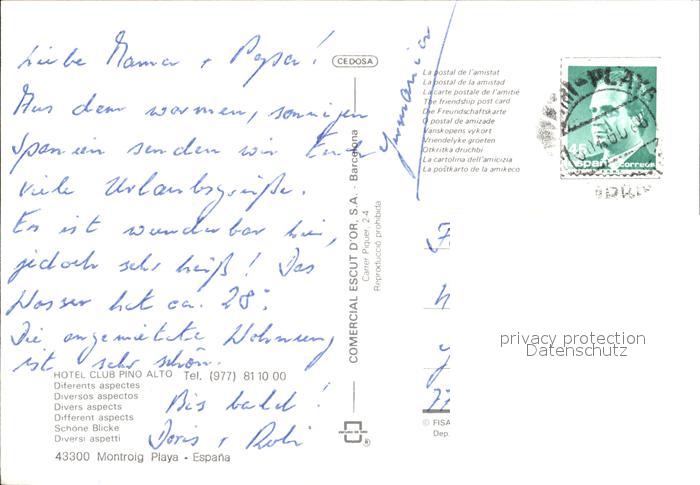 Liebe Mama + Papa!
Aus dem warmen, sonnigen
Spanien senden wir Euch
viele Urlaubsgrüße.
Es ist wunderbar hier,
jedoch sehr heiß! Das
Wasser hat ca. 28°.
Die angemietete Wohnung
ist sehr schön.
Bis bald!
Doris + Robi
HOTEL CLUB PINO ALTO Tel. (977) 81 10 00
Diferents aspectes
Diversos aspectos
Divers aspects
Different aspects
Schöne Blicke
Diversi aspetti
43300 Montroig Playa - España
CEDOSA
COMERCIAL ESCUT D'OR, S.A. - Barcelona
Carrer Piquer, 2-4
Reproducció prohibida
®
La postal de l'amistat
La postal de la amistad
La carte postale de l'amitié
The friendship post card
Die Freundschaftskarte
O postal de amizade
Vanskopens vykort
Vriendelyke groeten
Otkritka druchbi
La cartolina dell'amicizia
La poŝtkarto de la amikeco
45
España correos
privacy protection
Datenschutz
© FISA
Dep.